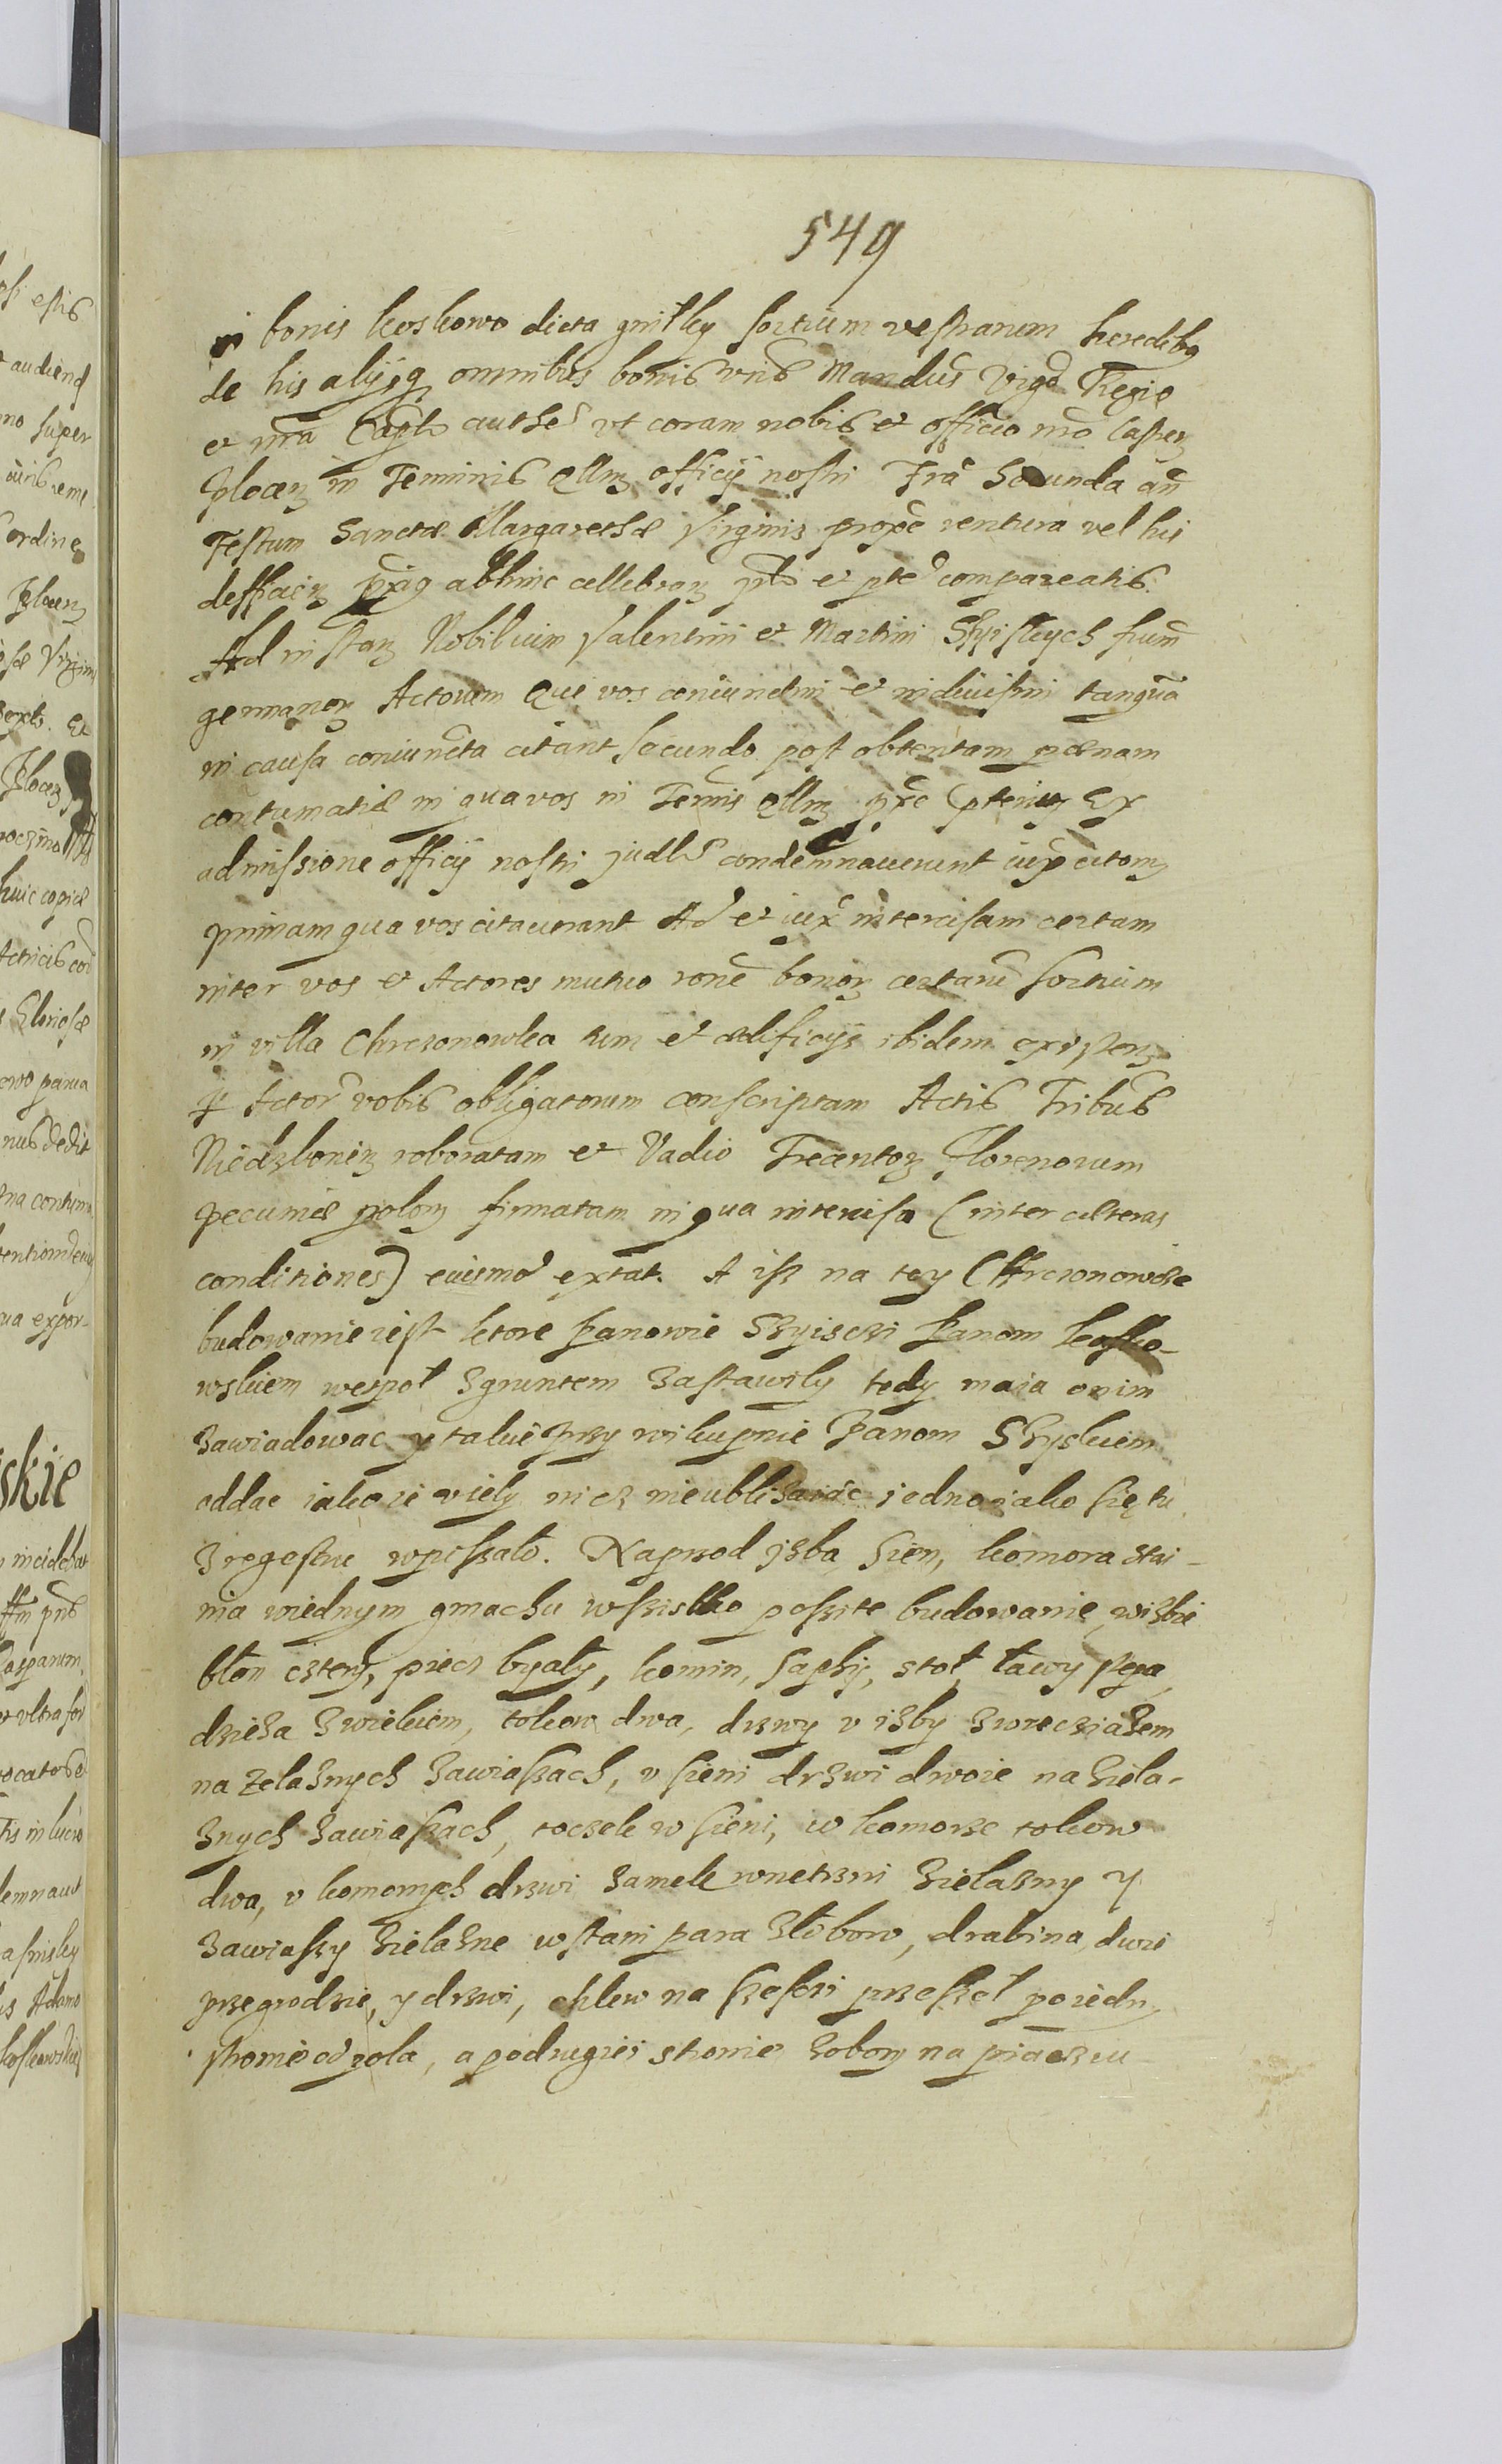 549
in bonis koskowo dicta gnitky sortium vestrarum heredibg
de his alijsq omnibus bonis vris Mandus Vigē Regie
et nrā Capli authē ut coram nobis et officio nrō Castrz
Plocenz in Terminis qllnz officij nostri Fra Secunda an
Festum Sanctæ Margarethæ Virginis proxē ventura vel his
defficienz abhinc cellebranz et compareatis.
Ad instanz Nobilium Valentini et Martini frūm
germanorz Actorum Qui vos coniunctim et indivisim tanquā
in causa coniuncta citant secundo post obtentam pœnam
contumatiæ in qua vos in Termis qllnz Ex
admissione officij nostri judlr condemnaverunt iuxa citaonz
primam qua vos citaverant Ad et iux intercisam certam
inter vos et Actores mutuo ronē bonorz certarū sortium
in villa Chrczonowka tum et ædificijs ibidem existenz
p Actor vobis obligatorum conscriptam Actis Tribus
Niedzbonienz roboratam et Vadio Trecentorz Florenorum
pecuniæ polonz firmatam in qua intercisa (inter cæteras
conditiones) eiusmō extat. A isz na tey Chrczonowce
budowanie iest ktore Panowie Skyisczi Panom kosko-
wskiem wespoł zgruntem zastawily tedy maia onim
zawiadowac y takie przy wikupnie Panom Skyskiem
oddac iako ie vięly nicz nieubliżaiąc jedno iako się tu
zregestru wpiszało. Naprzod jzba, sien, komora stai-
nia wiednym gmachu wszistko poszite budowanie, wizbie
błon cztery, piecz byały, komin, saphy, stoł, ławy stępa
dzieża zwiekiem, tokow dwa, drzwy v izby zwrzecziażem
na żelaznych zawiaszach, v sieni drzwi dwoie na żiela-
znych zawiaszach, toczek w sieni, w komorze tokow
dwa, v komornych drzwi zamek wnetrzni żielazny y
zawiaszy żielazne wstani para żłobow, drabina, dwie
przegrodzie, y drzwi, chlew na szesczi przeszeł po iedny
stronie od pola, a podrugiei stronie zobory na piaczu